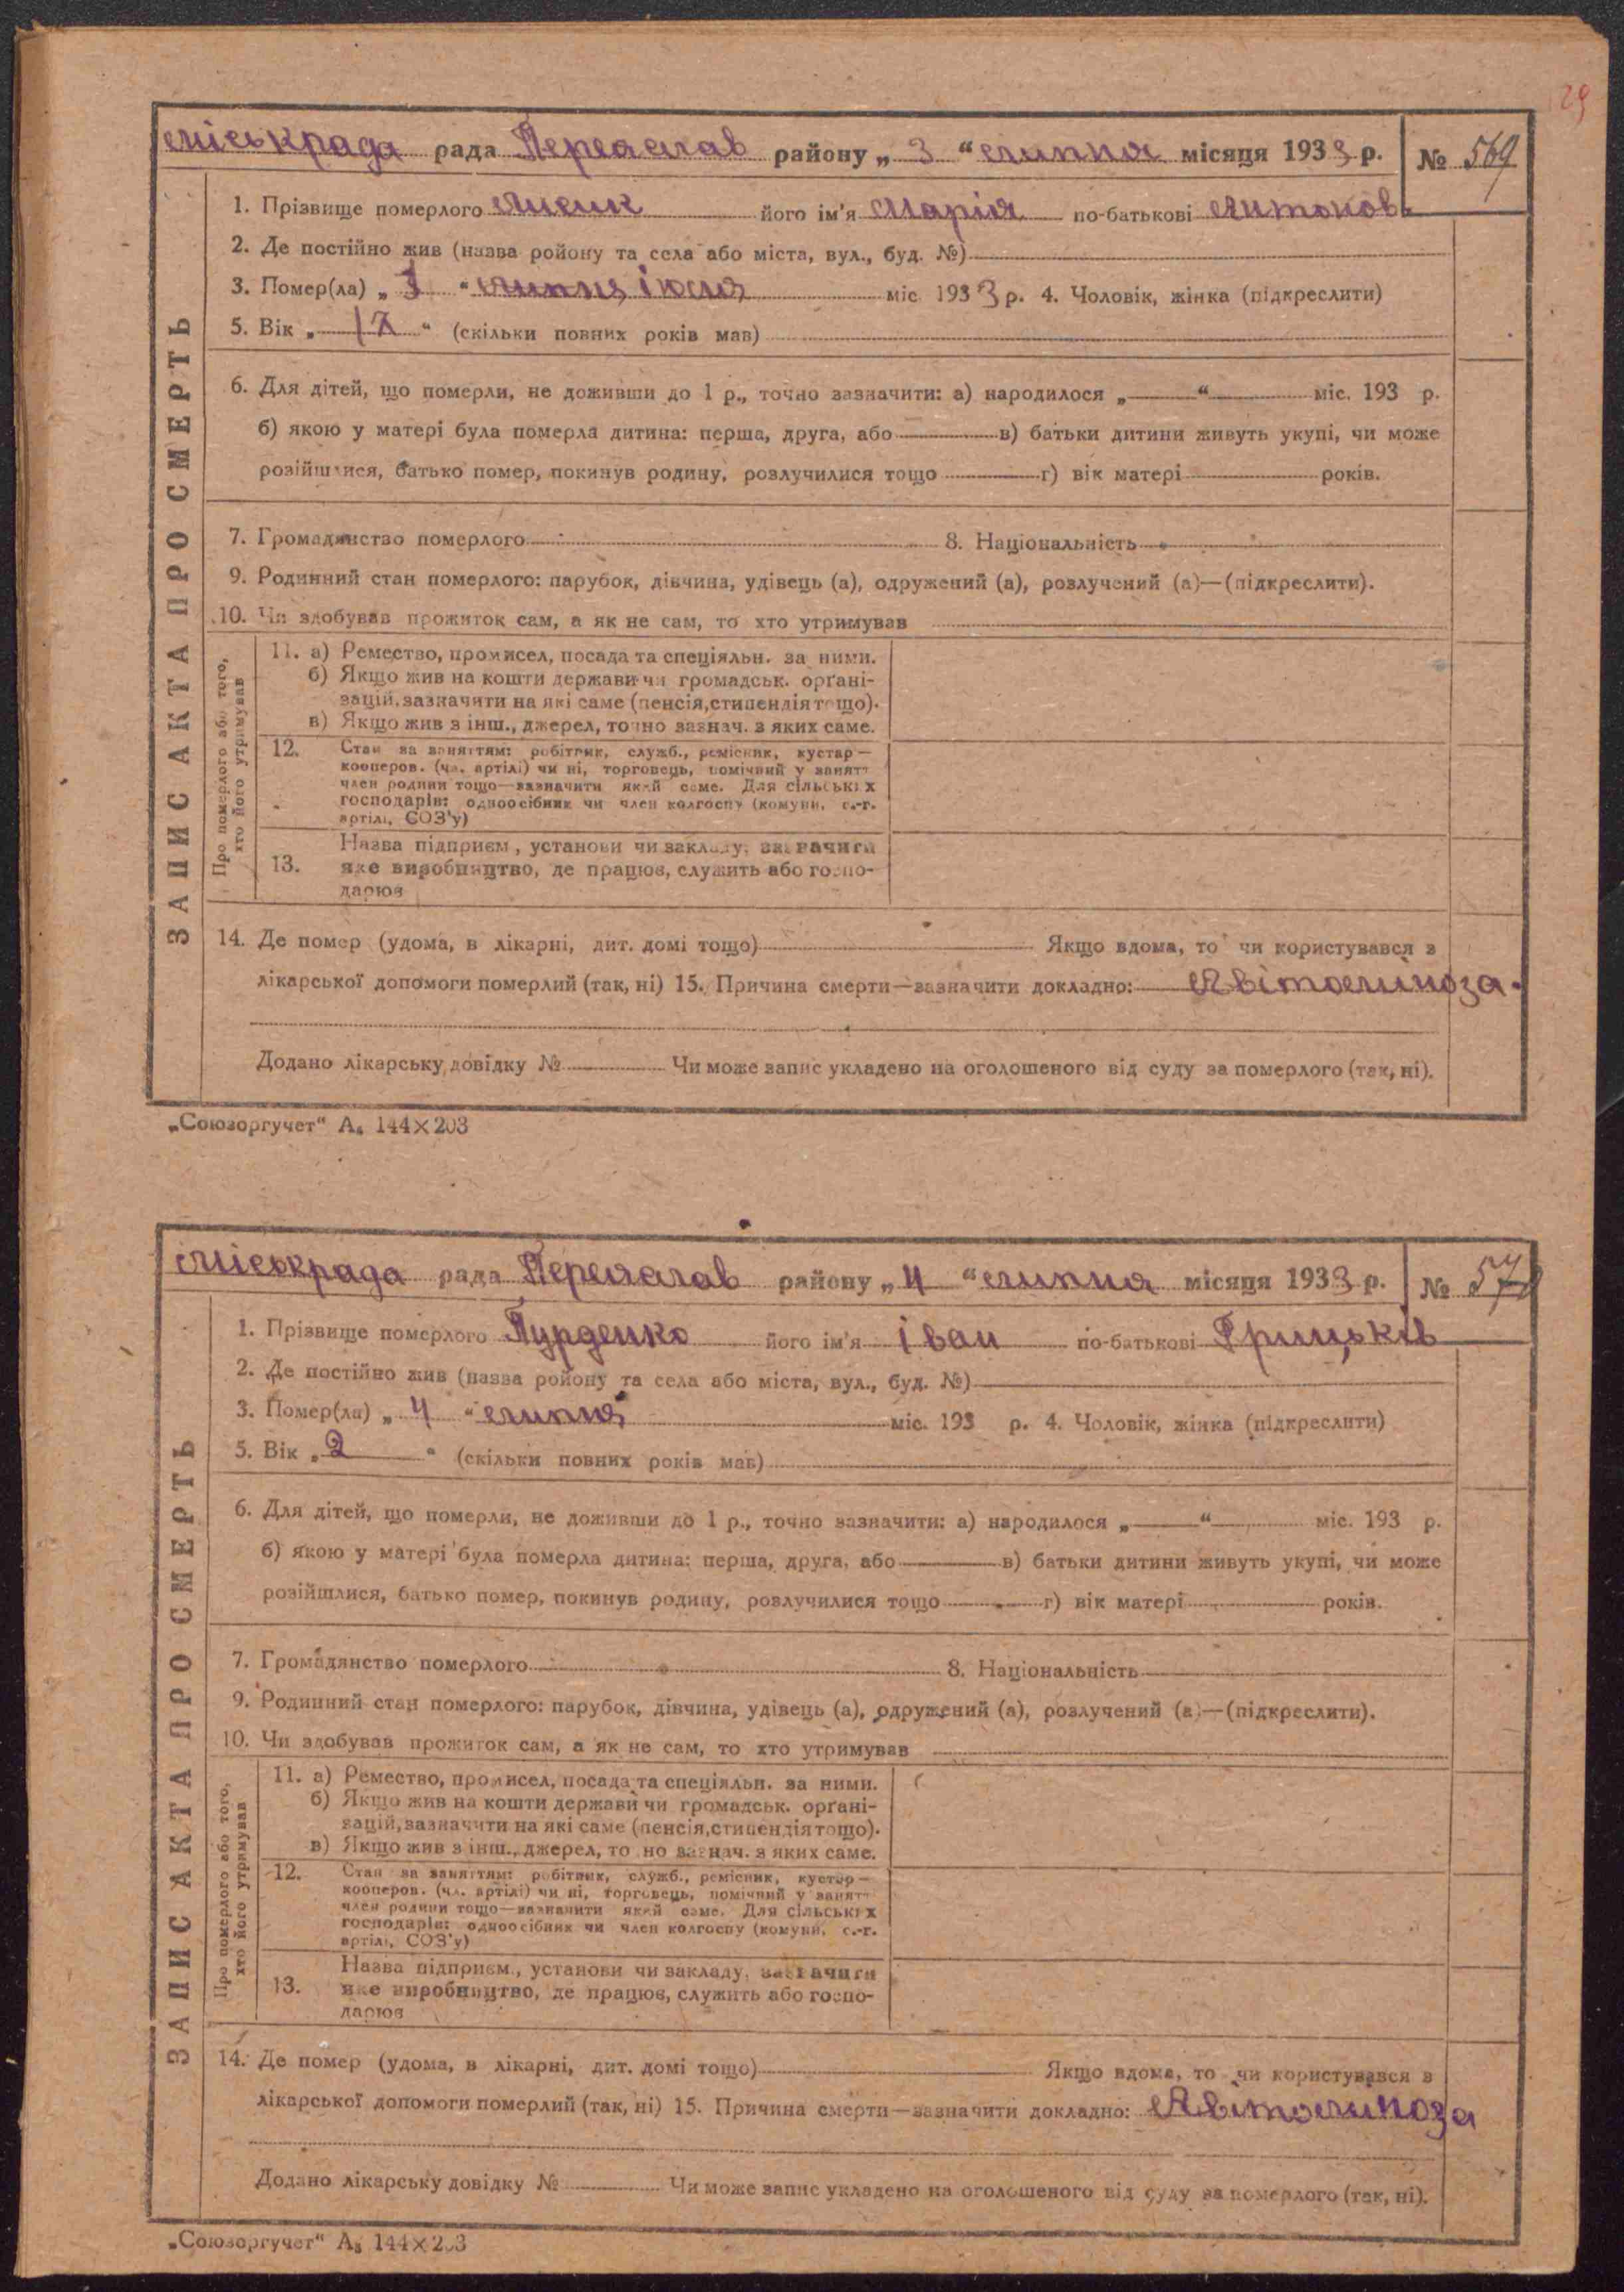 29
міськрада рада Переяслав району „ 3 “ липня місяця 1933 р. № 569
1. Прізвище померлого його ім'я Марія по-батькові Антонов.
2. Де постійно жив (назва ройону та села або міста, вул., буд. №)
3. Помер(ла) „ “ міс. 1933 р. 4. Чоловік, жінка (підкреслити)
5. Вік „ “ (скільки повних років мав)
6. Для дітей, що померли, не доживши до 1 р., точно зазначити: а) народилося „ “ міс. 193 р.
б) якою у матері була померла дитина: перша, друга, або в) батьки дитини живуть укупі, чи може
розійшлися, батько помер, покинув родину, розлучилися тощо г) вік матері років.
7. Громадянство померлого 8. Національність
9. Родинний стан померлого: парубок, дівчина, удівець (а), одружений (а), розлучений (а)—(підкреслити).
10. Чи здобував прожиток сам, а як не сам, то хто утримував
ЗАПИС АКТА ПРО СМЕРТЬ
Про померлого або того,
хто його утримував
11. а) Ремество, промисел, посада та спеціяльн. за ними.
б) Якщо жив на кошти держави чи громадськ. орґані-
зацій, зазначити на які саме (пенсія, стипендія тощо).
в) Якщо жив з інш., джерел, точно зазнач. з яких саме.
12. Стан за заняттям: робітник, служб., ремісник, кустар—
кооперов. (чл. артілі) чи ні, торговець, помічний у занятт
член родини тощо—зазначити який саме. Для сільських
господарів: одноосібник чи член колгоспу (комуни, с.-г.
артілі, СОЗ'у)
13. Назва підприєм., установи чи закладу, зазначити
яке виробництво, де працюв, служить або госпо-
дарюв
14. Де помер (удома, в лікарні, дит. домі тощо) Якщо вдома, то чи користувався з
лікарської допомоги померлий (так, ні) 15. Причина смерти—зазначити докладно: Авітоминоза.
Додано лікарську довідку № Чи може запис укладено на оголошеного від суду за померлого (так, ні).
„Союзоргучет“ А₅ 144×203
міськрада рада Переяслав району „ 4 “ липня місяця 1933 р. № 570
1. Прізвище померлого Пурденко його ім'я Іван по-батькові Грицьків
2. Де постійно жив (назва ройону та села або міста, вул., буд. №)
3. Помер(ла) „ 4 “ липня міс. 193 р. 4. Чоловік, жінка (підкреслити)
5. Вік „ 2 “ (скільки повних років мав)
6. Для дітей, що померли, не доживши до 1 р., точно зазначити: а) народилося „ “ міс. 193 р.
б) якою у матері була померла дитина: перша, друга, або в) батьки дитини живуть укупі, чи може
розійшлися, батько помер, покинув родину, розлучилися тощо г) вік матері років.
7. Громадянство померлого 8. Національність
9. Родинний стан померлого: парубок, дівчина, удівець (а), одружений (а), розлучений (а)—(підкреслити).
10. Чи здобував прожиток сам, а як не сам, то хто утримував
ЗАПИС АКТА ПРО СМЕРТЬ
Про померлого або того,
хто його утримував
11. а) Ремество, промисел, посада та спеціяльн. за ними.
б) Якщо жив на кошти держави чи громадськ. орґані-
зацій, зазначити на які саме (пенсія, стипендія тощо).
в) Якщо жив з інш., джерел, точно зазнач. з яких саме.
12. Стан за заняттям: робітник, служб., ремісник, кустар—
кооперов. (чл. артілі) чи ні, торговець, помічний у занятт
член родини тощо—зазначити який саме. Для сільських
господарів: одноосібник чи член колгоспу (комуни, с.-г.
артілі, СОЗ'у)
13. Назва підприєм., установи чи закладу, зазначити
яке виробництво, де працюв, служить або госпо-
дарюв
14. Де помер (удома, в лікарні, дит. домі тощо) Якщо вдома, то чи користувався з
лікарської допомоги померлий (так, ні) 15. Причина смерти—зазначити докладно: Авітоминоза
Додано лікарську довідку № Чи може запис укладено на оголошеного від суду за померлого (так, ні).
„Союзоргучет“ А₅ 144×203